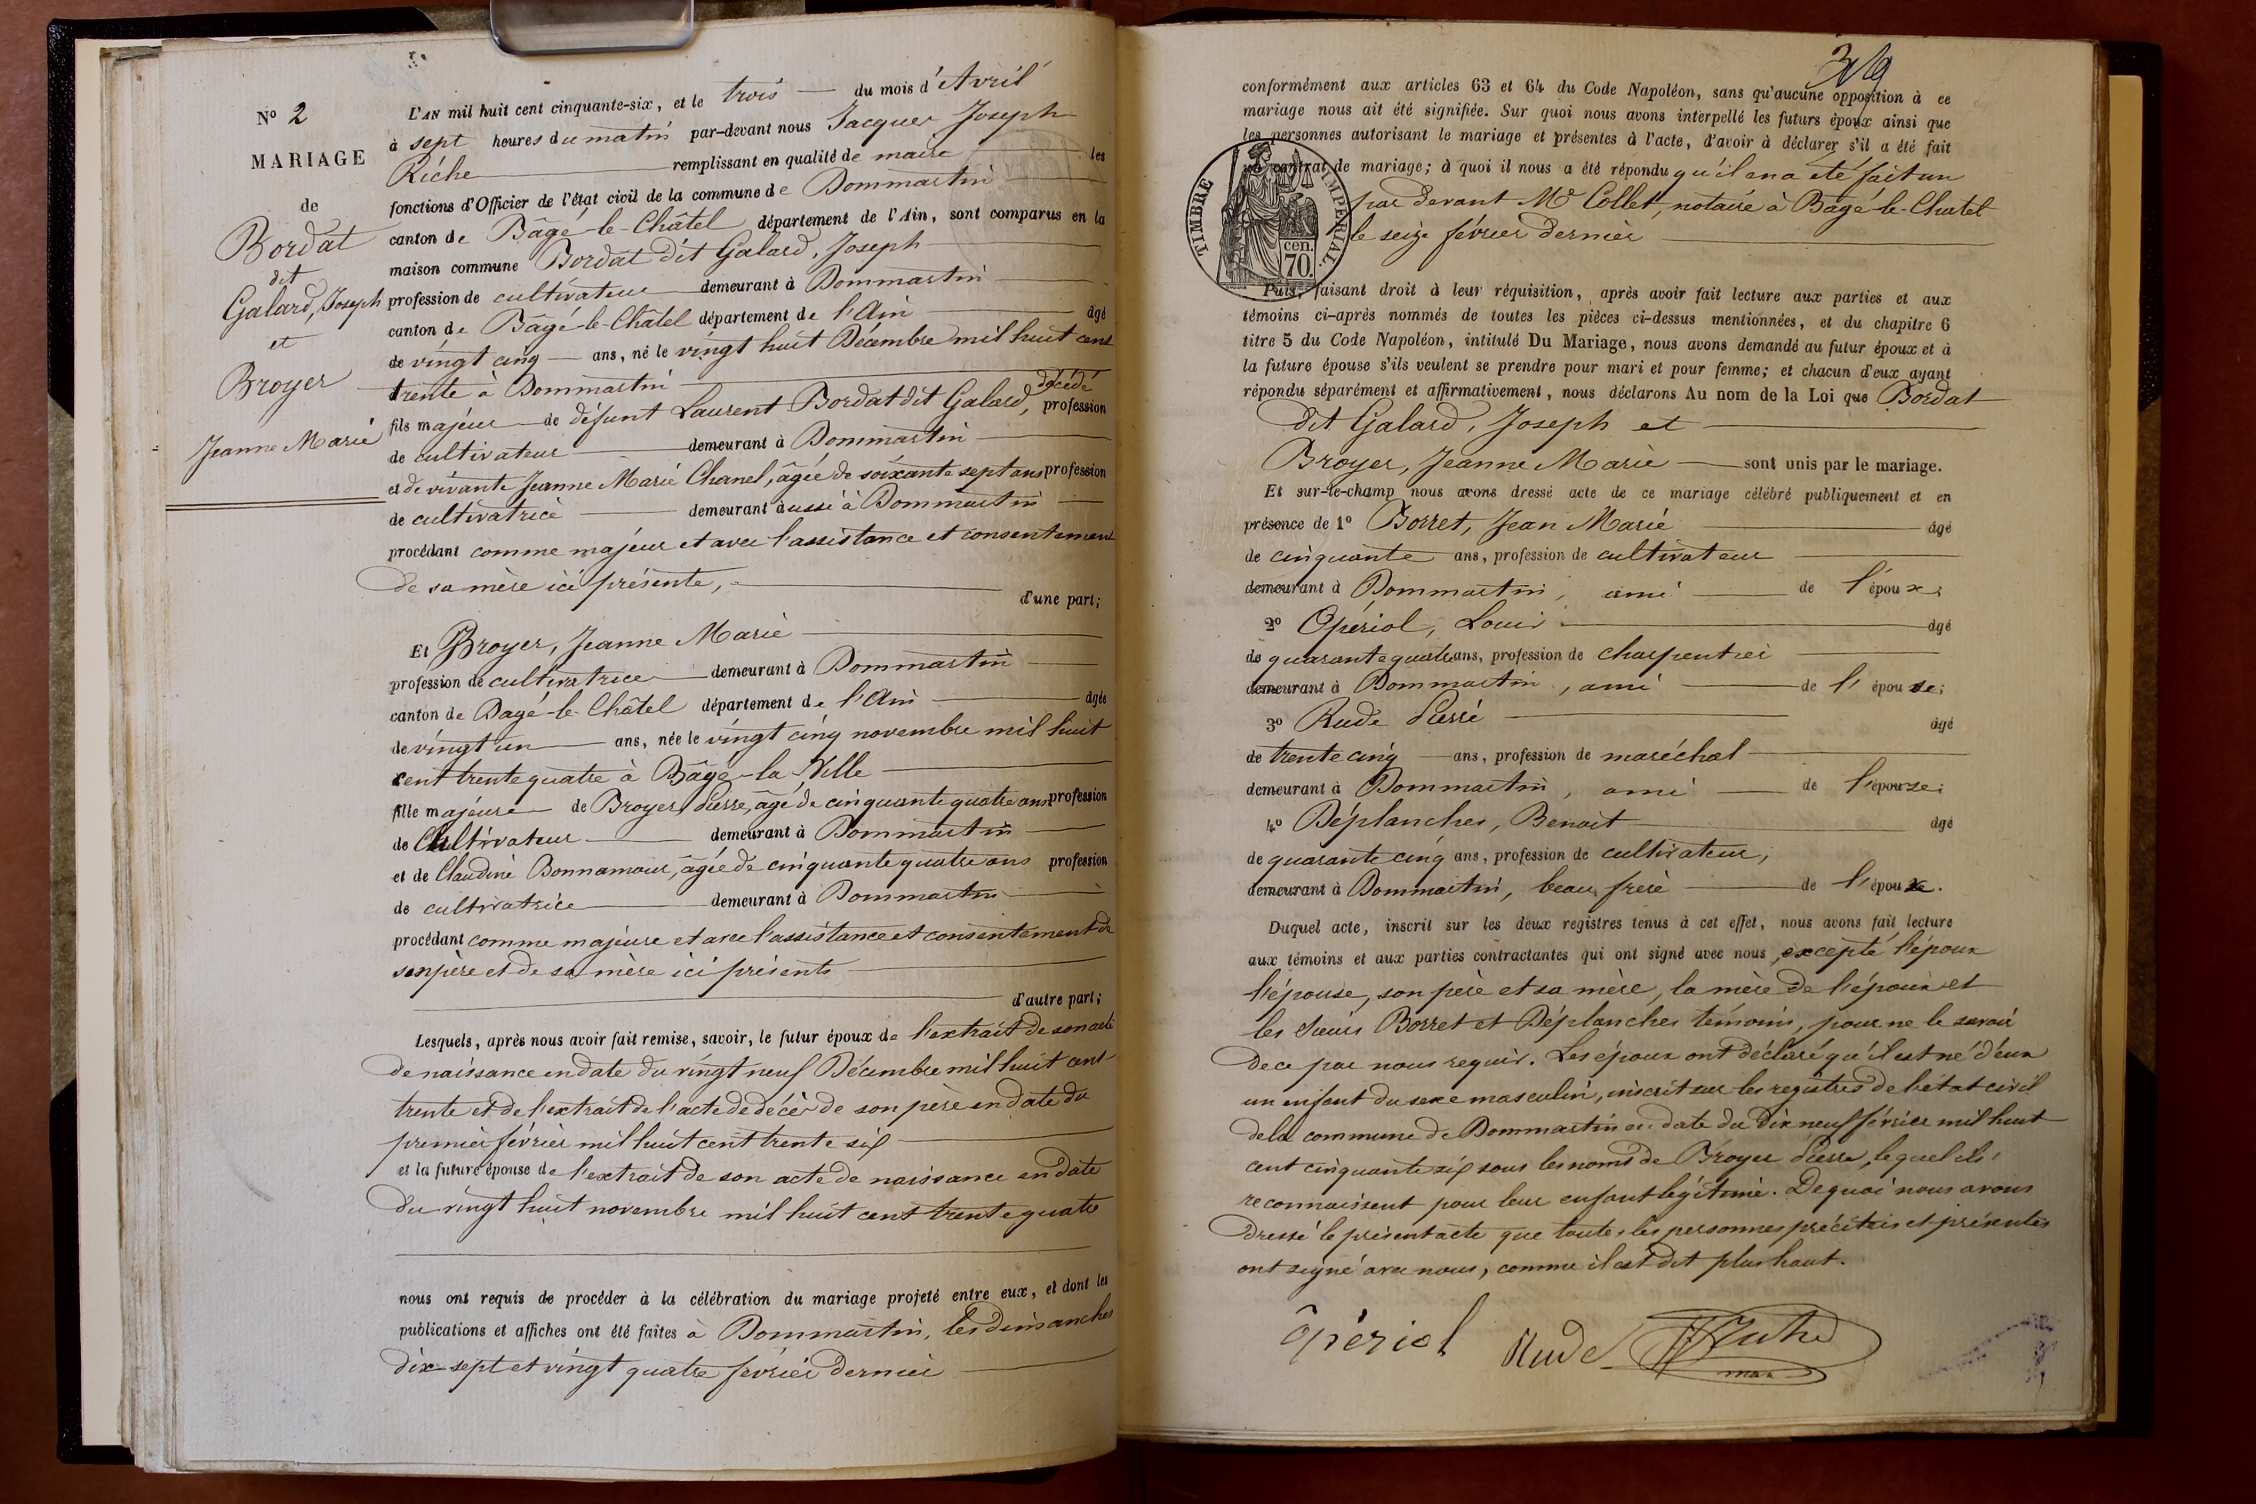 N° 2
MARIAGE
de
Bordat
dit
Galard, Joseph
et
Broyer
Jeanne Marie
L'AN mil huit cent cinquante-six, et le trois du mois d'Avril
à sept heures du matin par-devant nous Jacques Joseph
Riche remplissant en qualité de maire les
fonctions d'Officier de l'état civil de la commune de Dommartin
canton de Bâgé-le-Châtel département de l'Ain, sont comparus en la
maison commune Bordat dit Galard, Joseph
profession de cultivateur demeurant à Dommartin
canton de Bâgé-le-Châtel département de l'Ain âgé
de vingt cinq ans, né le vingt huit Décembre mil huit cent
trente à Dommartin
décédé
fils majeur de défunt Laurent Bordat dit Galard, profession
de cultivateur demeurant à Dommartin
et de vivante Jeanne Marie Chanel, âgée de soixante sept ans profession
de cultivatrice demeurant aussi à Dommartin
procédant comme majeur et avec l'assistance et consentement
de sa mère ici présente,
d'une part;
Et Broyer, Jeanne Marie
profession de cultivatrice demeurant à Dommartin
canton de Bagé-le-Châtel département de l'Ain âgée
de vingt un ans, née le vingt cinq novembre mil huit
cent trente quatre à Bâgé-la-Ville
fille majeure de Broyer Pierre, âgé de cinquante quatre ans profession
de Cultivateur demeurant à Dommartin
et de Claudine Bonnamour, âgée de cinquante quatre ans profession
de cultivatrice demeurant à Dommartin
procédant comme majeure et avec l'assistance et consentement de
son père et de sa mère ici présents
d'autre part;
Lesquels, après nous avoir fait remise, savoir, le futur époux de l'extrait de son acte
de naissance en date du vingt neuf Décembre mil huit cent
trente et de l'extrait de l'acte de décès de son père en date du
premier février mil huit cent trente six
et la future épouse de l'extrait de son acte de naissance en date
du vingt huit novembre mil huit cent trente quatre
nous ont requis de procéder à la célébration du mariage projeté entre eux, et dont les
publications et affiches ont été faites à Dommartin, les dimanches
dix-sept et vingt quatre février dernier
conformément aux articles 63 et 64 du Code Napoléon, sans qu'aucune opposition à ce
mariage nous ait été signifiée. Sur quoi nous avons interpellé les futurs époux ainsi que
les personnes autorisant le mariage et présentes à l'acte, d'avoir à déclarer s'il a été fait
un contrat de mariage; à quoi il nous a été répondu qu'il en a été fait un
par devant Me Collet, notaire à Bagé-le-Chatel
le seize février dernier
TIMBRE IMPERIAL.
cen.
70.
Puis, faisant droit à leur réquisition, après avoir fait lecture aux parties et aux
témoins ci-après nommés de toutes les pièces ci-dessus mentionnées, et du chapitre 6
titre 5 du Code Napoléon, intitulé Du Mariage, nous avons demandé au futur époux et à
la future épouse s'ils veulent se prendre pour mari et pour femme; et chacun d'eux ayant
répondu séparément et affirmativement, nous déclarons Au nom de la Loi que Bordat
dit Galard, Joseph et
Broyer, Jeanne Marie sont unis par le mariage.
Et sur-le-champ nous avons dressé acte de ce mariage célébré publiquement et en
présence de 1° Borret, Jean Marie âgé
de cinquante ans, profession de cultivateur
demeurant à Dommartin, ami de l'époux;
2° Opériol, Louis âgé
de quarante quatre ans, profession de charpentier
demeurant à Dommartin, ami de l'épouse;
3° Rude Pierre âgé
de trente cinq ans, profession de maréchal
demeurant à Dommartin, ami de l'épouse;
4° Déplanches, Benoit âgé
de quarante cinq ans, profession de cultivateur,
demeurant à Dommartin, beau frère de l'époux.
Duquel acte, inscrit sur les deux registres tenus à cet effet, nous avons fait lecture
aux témoins et aux parties contractantes qui ont signé avec nous, excepté l'époux
l'épouse, son père et sa mère, la mère de l'époux et
les sieurs Borret et Déplanches témoins, pour ne le savoir
de ce par nous requis. Les époux ont déclaré qu'il est né d'eux
un enfant du sexe masculin, inscrit sur les registres de l'état civil
de la commune de Dommartin en date du dix neuf février mil huit
cent cinquante six sous les noms de Broyer Pierre, lequel ils
reconnaissent pour leur enfant légitime. De quoi nous avons
dressé le présent acte que toutes les personnes précitées et présentes
ont signé avec nous, comme il est dit plus haut.
Opériol Rude